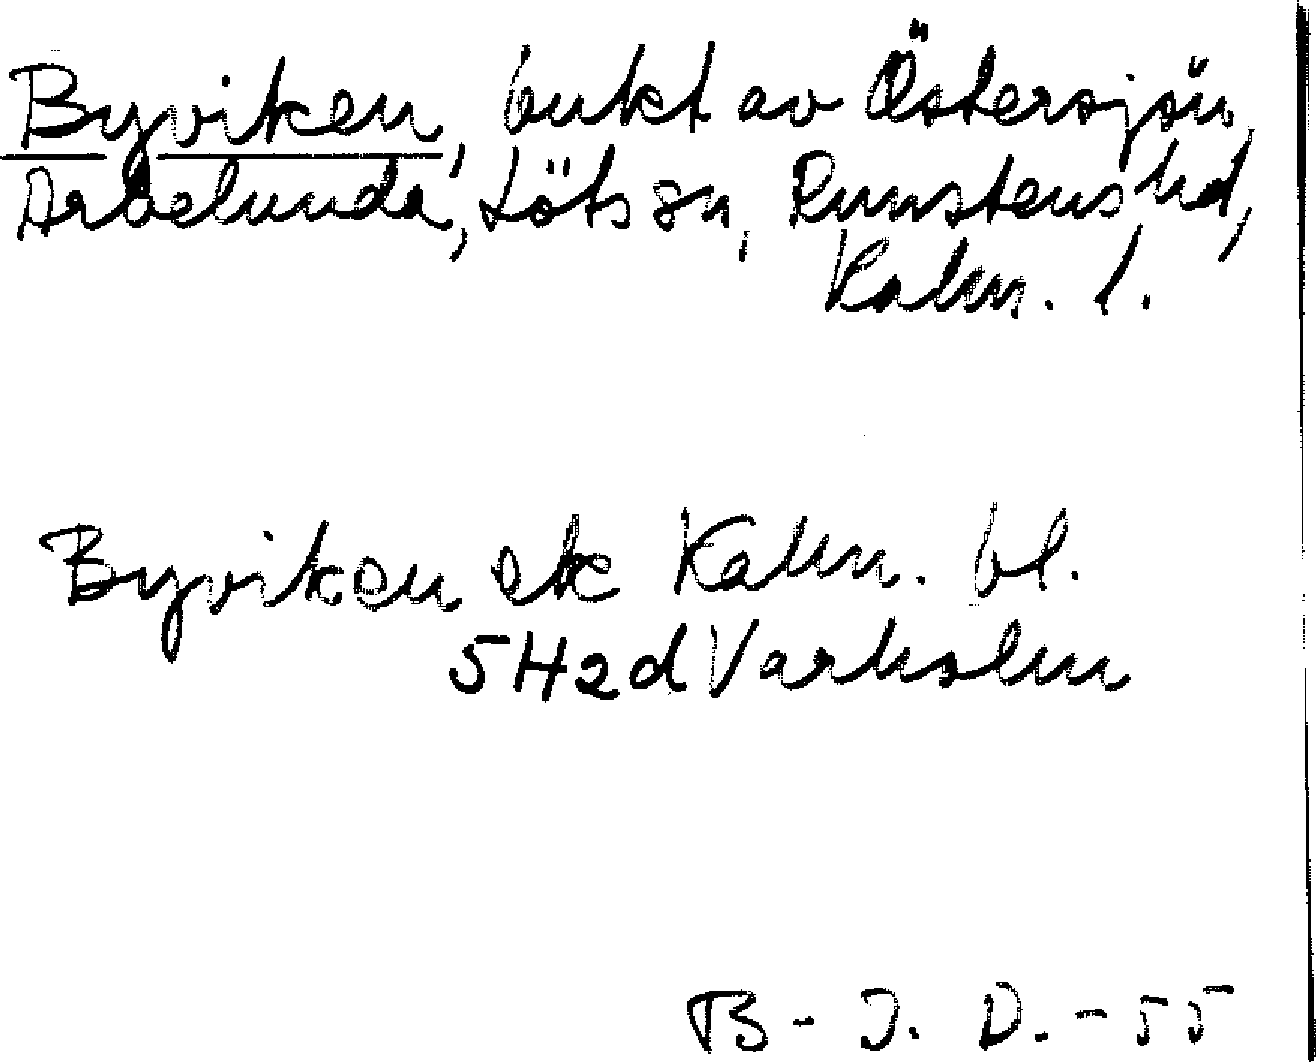 Byviken, bukt av Östersjön,
Arbelunda, Löts sn, Runstens hd,
Kalm. l.
Byviken ek Kalm. bl.
5H2d Varholm
B-J. D. -55